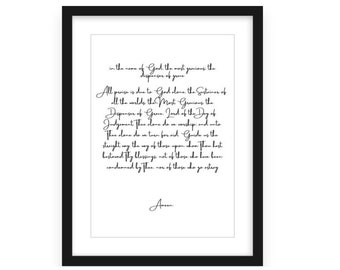 in the name of God, the most gracious, the
dispenser of grace
All praise is due to God alone, the Sustainer of
all the worlds, the Most Gracious, the
Dispenser of Grace, Lord of the Day of
Judgement! Thee alone do we worship; and unto
Thee alone do we turn for aid. Guide us the
straight way, the way of those upon whom Thou hast
bestowed Thy blessings, not of those who have been
condemned by Thee, nor of those who go astray
Ameen.